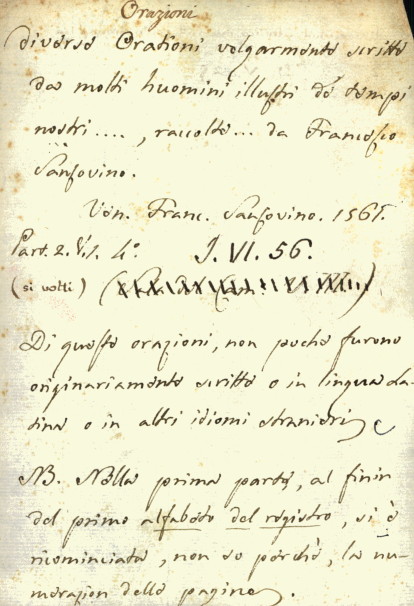 Orazioni
diverse Orationi volgarmente scritte
da molti huomini illustri de' tempi
nostri...., raccolte... da Francesco
Sansovino.
Ven. Franc. Sansovino. 1561.
Part. 2. V. 1. 4º. J. VI. 56.
(si volti)
Di queste orazioni, non poche furono
originariamente scritte o in lingua La-
tina o in altri idiomi stranieri
NB. Nella prima parte, al finir
del primo alfabeto del registro, si è
ricominciata, non so perchè, la nu-
merazion delle pagine.